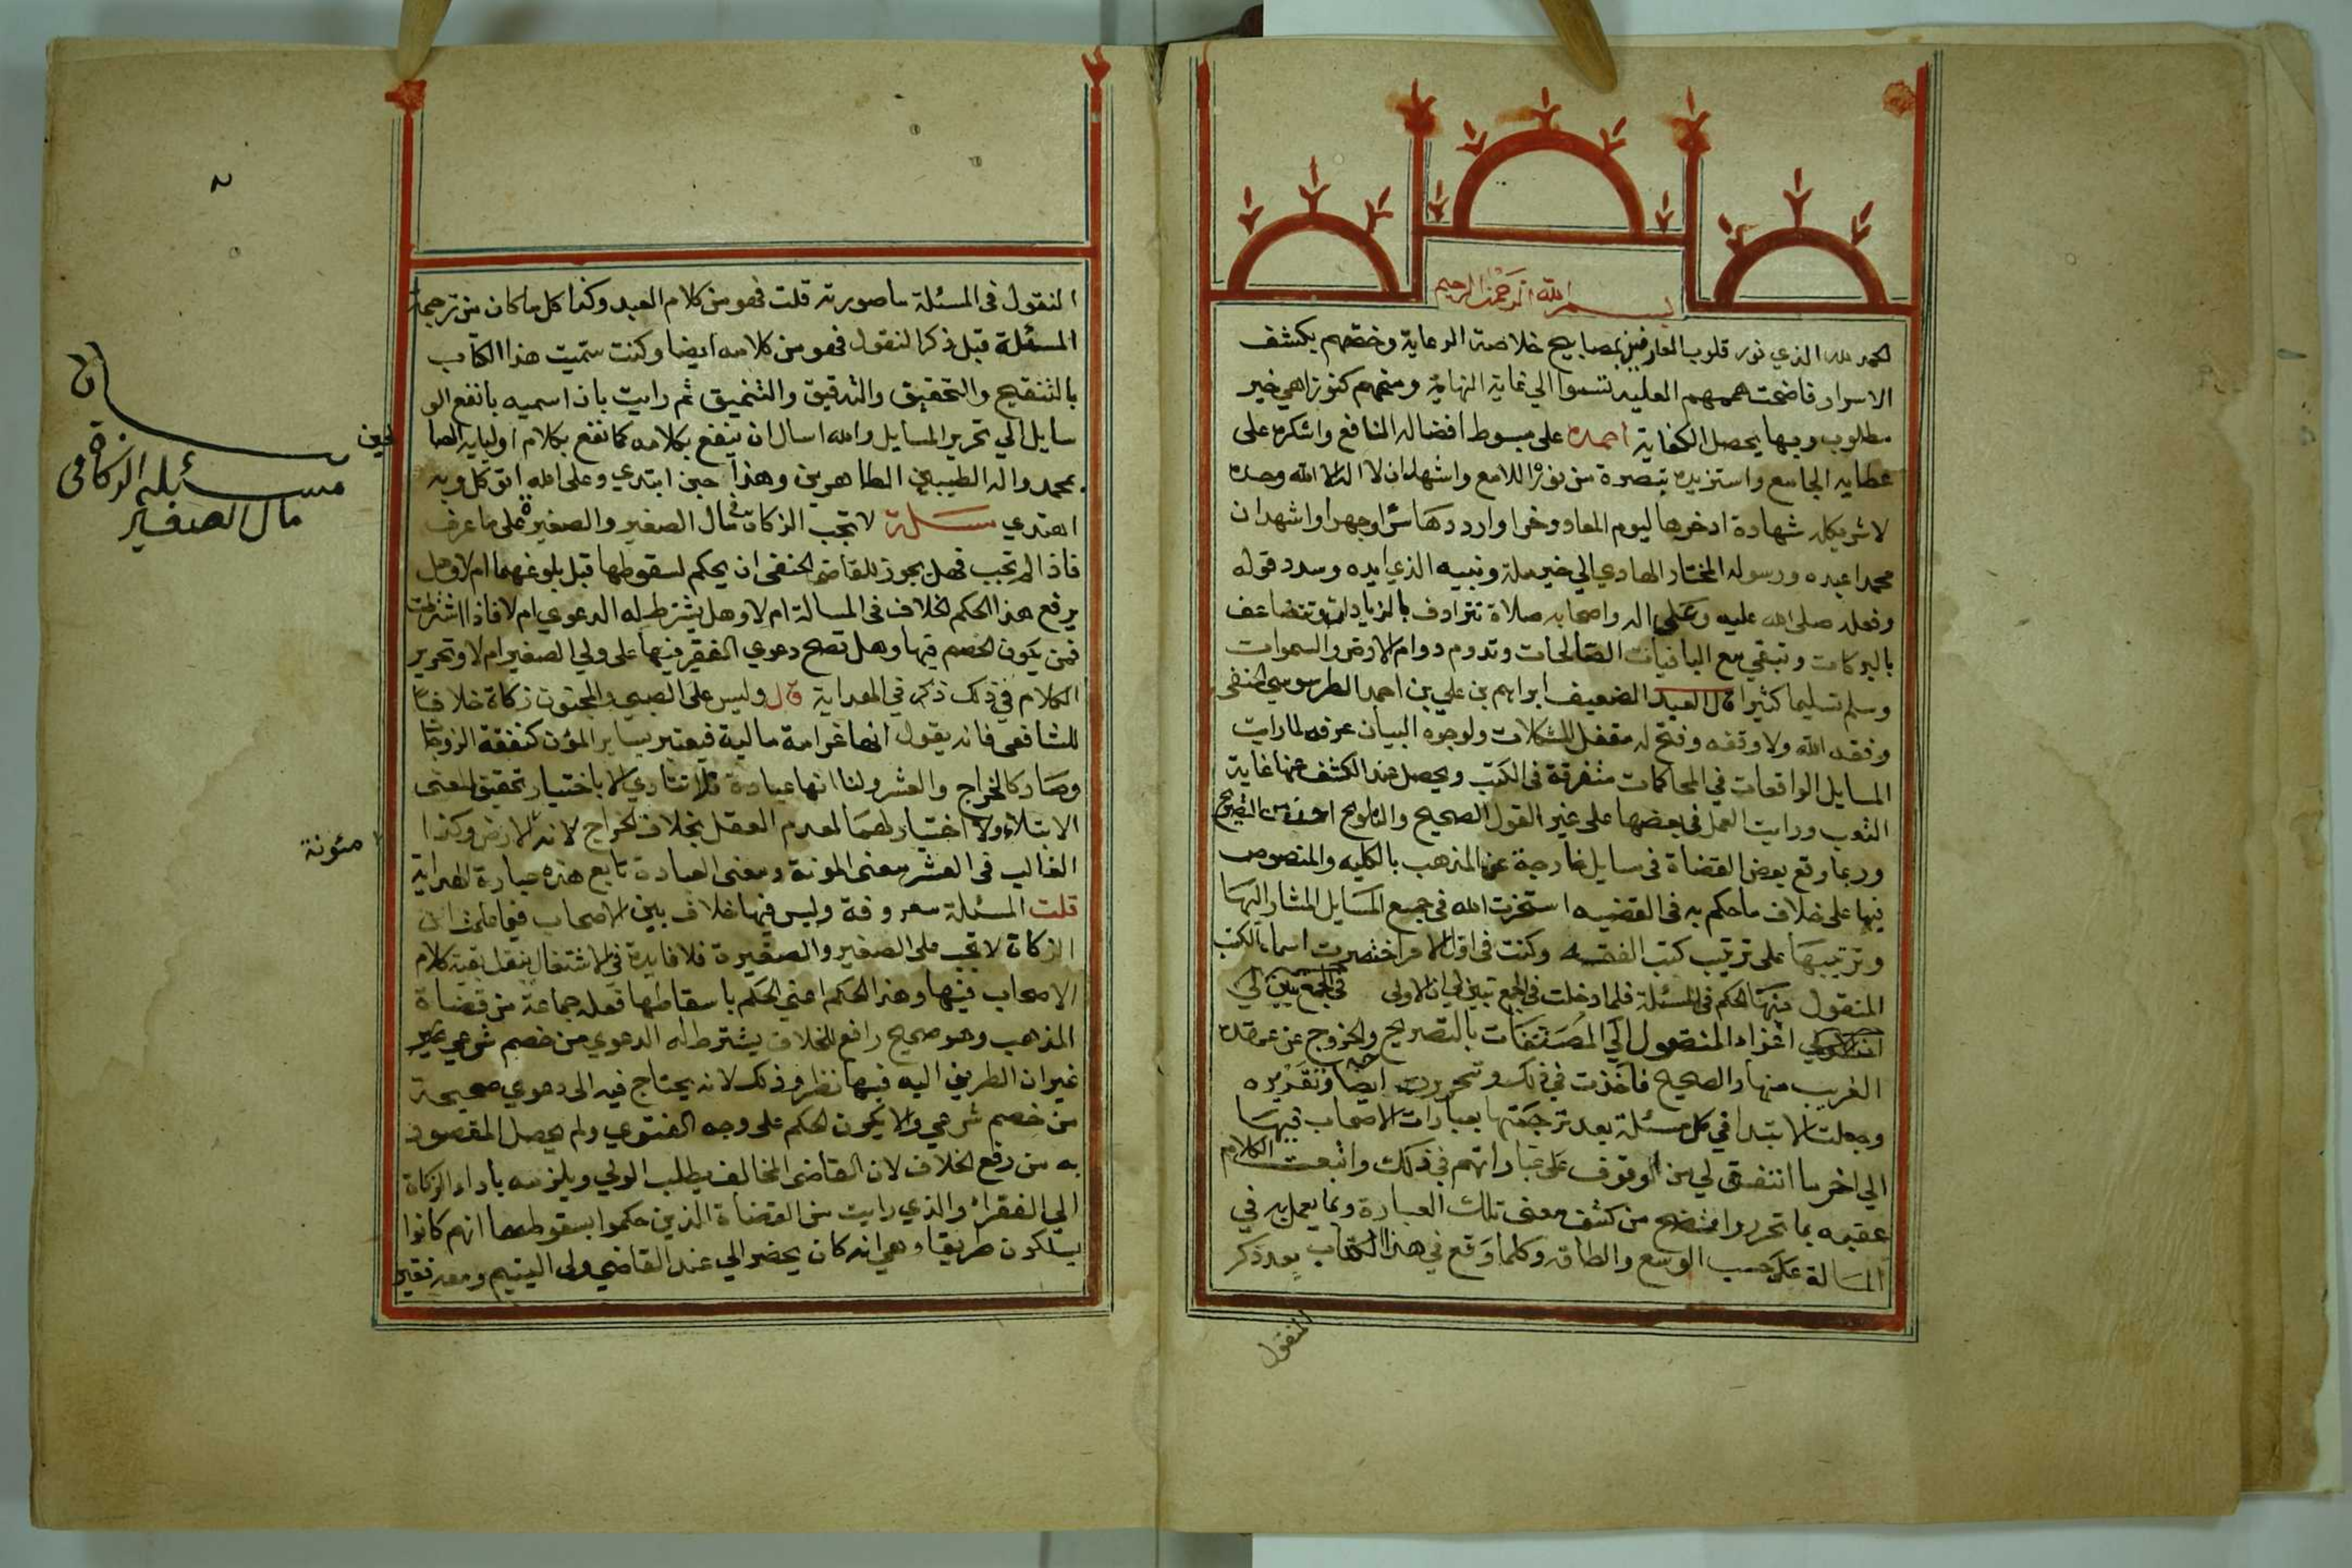 بسم الله الرحمن الرحيم
الحمد لله الذي نور قلوب العارفين بمصابيح خلاصة الرعاية وخصهم بكشف
الاسرار فاضحت هممهم العلية تسموا الي نهاية النهاية ومنحهم كنوزا هي خير
مطلوب وبها يحصل الكفاية احمده على مبسوط افضاله النافع واشكره على
عطايه الجامع واستزيده تبصرة من نوره اللامع واشهد ان لا اله الا الله وحده
لا شريك له شهادة ادخرها ليوم المعاد وخرا وارددها سرا وجهرا واشهد ان
محمدا عبده ورسوله المختار الهادي الي خير ملة ونبيه الذي ايده وسدد قوله
وفعله صلى الله عليه وعلى اله واصحابه صلاة تترادف بالزيادات وتتضاعف
بالبركات وتبقي مع الباقيات الصالحات وتدوم دوام الارض والسموات
وسلم تسليما كثيرا قال العبد الضعيف ابراهيم بن علي بن احمد الطرسوسي الحنفي
وفقه الله ولا وقفه وفتح له مقفل المشكلات ولوجوه البيان عرفه لما رايت
المسايل الواقعات في المحاكمات متفرقة في الكتب ويحصل عند الكشف عنها غاية
التعب ورايت العمل في بعضها على غير القول الصحيح والتلويح من التصريح
وربما وقع بعض القضاة في مسايل خارجة عن المذهب بالكليه والمنصوص
فيها على خلاف ما حكم به في القضيه استخرت الله في جميع المسايل المشار اليها
وترتيبها على ترتيب كتب الفقه وكنت في اول الامر اختصرت اسماء الكتب
المنقول منها الحكم في المسئلة فلما دخلت في الجمع تبين لي ان الاولى في الجمع تبين لي
اعزاء المنقول الي المصنفات بالتصريح والخروج عن عهدة
الغريب منها والصحيح فاخذت في ذلك وتحريره ايضا وتقريره
وجعلت الابتدا في كل مسئلة بعد ترجمتها بعبارات الاصحاب فيها
الي اخر ما اتفق لي من الوقوف على عباراتهم في ذلك واتبعت الكلام
عقيبه بما تحرر واتضح من كشف معنى تلك العبارة وبما يعمل به في
المسالة على حسب الوسع والطاقه وكلما وقع في هذا الكتاب بعد ذكر
المنقول
النقول في المسئلة ما صورته قلت فهو من كلام العبد وكذا كل ما كان من ترجمة
المسئلة قبل ذكر النقول فهو من كلامه ايضا وكنت سميت هذا الكتاب
بالتنقيح والتحقيق والتدقيق والتنميق ثم رايت بان اسميه بانفع الو
سايل الي تحرير المسايل والله اسال ان ينفع بكلامه كما نفع بكلام اوليايه الصا
لحين
بمحمد واله الطيبين الطاهرين وهذا حين ابتدي وعلى الله اتوكل وبه
اهتدي مسئلة لا تجب الزكاة في مال الصغير والصغيرة على ما عرف
فاذا لم تجب فهل يجوز للقاضي الحنفى ان يحكم لسقوطها قبل بلوغهما ام لا وهل
يرفع هذا الحكم الخلاف في المسالة ام لا وهل يشترط له الدعوي ام لا فاذا اشترطت
فمن يكون الخصم فيها وهل تصح دعوي الفقير فيها على ولي الصغير ام لا وتحرير
الكلام في ذلك ذكر في الهداية قال وليس على الصبي والمجنون زكاة خلافا
للشافعي فانه يقول انها غرامة مالية فيعتبر بساير المؤن كنفقة الزوجات
وصار كالخراج والعشر ولنا انها عبادة فلا تتادي الا باختيار تحقيق لمعنى
الابتلاء ولا اختيار لهما لعدم العقل بخلاف الخراج لانه الارض وكذا
مئونة
الغالب في العشر معنى المونة ومعنى العبادة تابع هذه عبارة الهداية
قلت المسئلة معروفة وليس فيها خلاف بين الاصحاب فيما علمت ان
الزكاة لا تجب على الصغير والصغيرة فلا فايدة في الاشتغال بنقل بقية كلام
الاصحاب فيها وهذا الحكم اعني الحكم باسقاطها فعله جماعة من قضاة
المذهب وهو صحيح رافع للخلاف يشترط له الدعوي من خصم شرعي
غير ان الطريق اليه فيها نظر وذلك لانه يحتاج فيه الى دعوي صحيحة
من خصم شرعي والا يكون الحكم على وجه الفتوي ولم يحصل المقصود
به من رفع الخلاف لان القاضى المخالف يطلب الولي ويلزمه باداء الزكاة
الي الفقراء والذي رايت من القضاة الذين حكموا بسقوطها انهم كانوا
يسلكون طريقا وهي انه كان يحضر الي عند القاضي ولي اليتيم ومعه فقير
مسئلة الزكاة في
مال الصغير